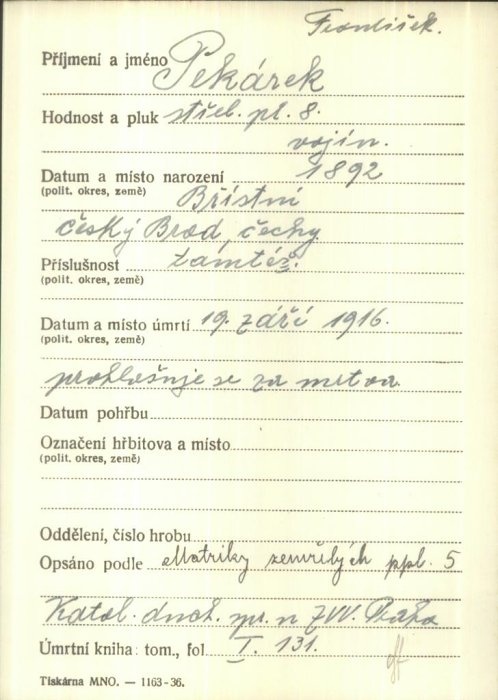 František.
Příjmení a jméno Pekárek
Hodnost a pluk střel. pl. 8.
vojín.
Datum a místo narození 1892
(polit. okres, země) Břístvi
český Brod, čechy
Příslušnost tamtéž.
(polit. okres, země)
Datum a místo úmrtí 19. září 1916.
(polit. okres, země)
prohlašuje se za mrtva.
Datum pohřbu
Označení hřbitova a místo
(polit. okres, země)
Oddělení, číslo hrobu
Opsáno podle Matriky zemřelých ppl. 5
Katol. duch. spr. n ZVV. Praha
Úmrtní kniha: tom., fol I. 131.
Tiskárna MNO. — 1163-36.